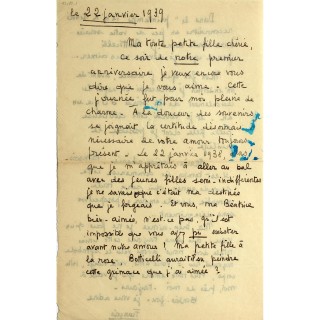 le 22 janvier 1939
Ma toute petite fille chérie,
ce soir de notre premier
anniversaire je veux encore vous
dire que je vous aime. Cette
journée fut pour moi pleine de
charme. A la douceur des souvenirs
se joignait la certitude désormais
nécessaire de votre amour toujours
présent. Le 22 janvier 1938,
que je m'apprêtais à aller au bal
avec des jeunes filles semi-indifférentes
je ne savais que c'était ma destinée
que je forgeais. Et vous, ma Béatrice
bien-aimée, n'est-ce pas, qu'il est
impossible que vous ayez pu exister
avant notre amour ! Ma petite fille à
la rose, Botticelli aurait-il su peindre
cette grimace que j'ai aimée ?